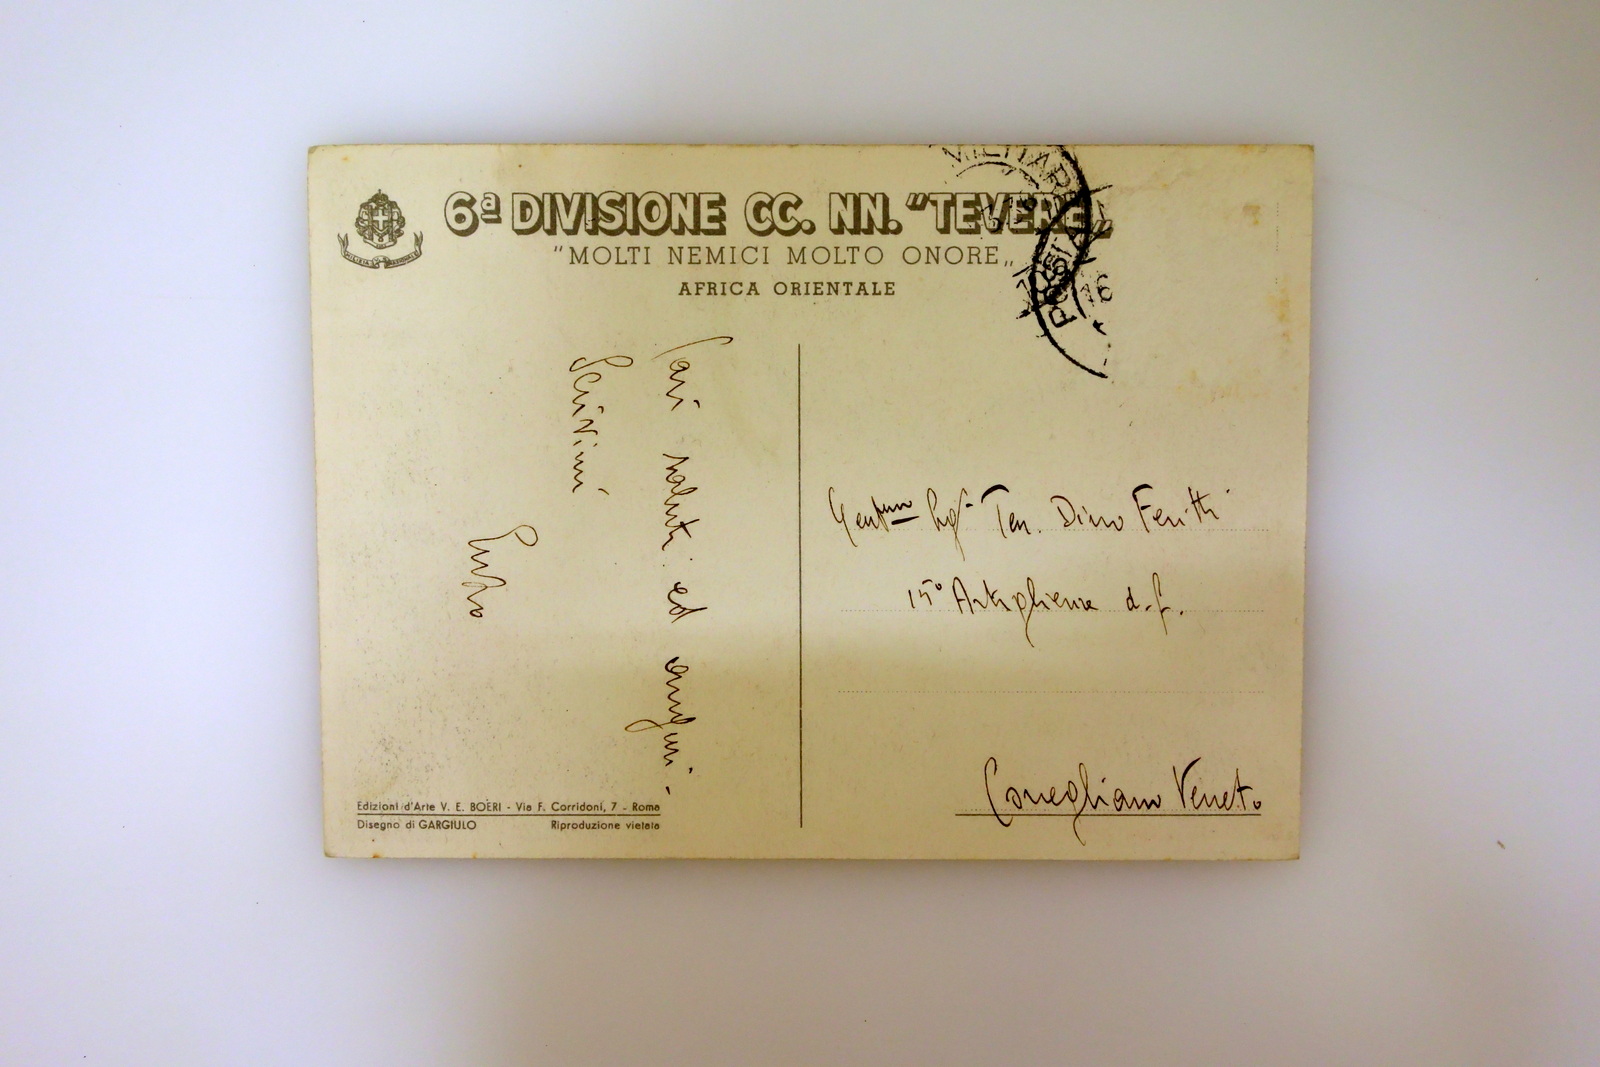 6ª DIVISIONE CC. NN. "TEVERE„
"MOLTI NEMICI MOLTO ONORE„
AFRICA ORIENTALE
MILITARE
POSTA
Cari saluti ed auguri -
Scrivimi
Gent.mo Sig. Ten. Dino Feritti
15° Artiglieria d. f.
Conegliano Veneto
Edizioni d'Arte V. E. BOERI - Via F. Corridoni, 7 - Roma
Disegno di GARGIULO Riproduzione vietata